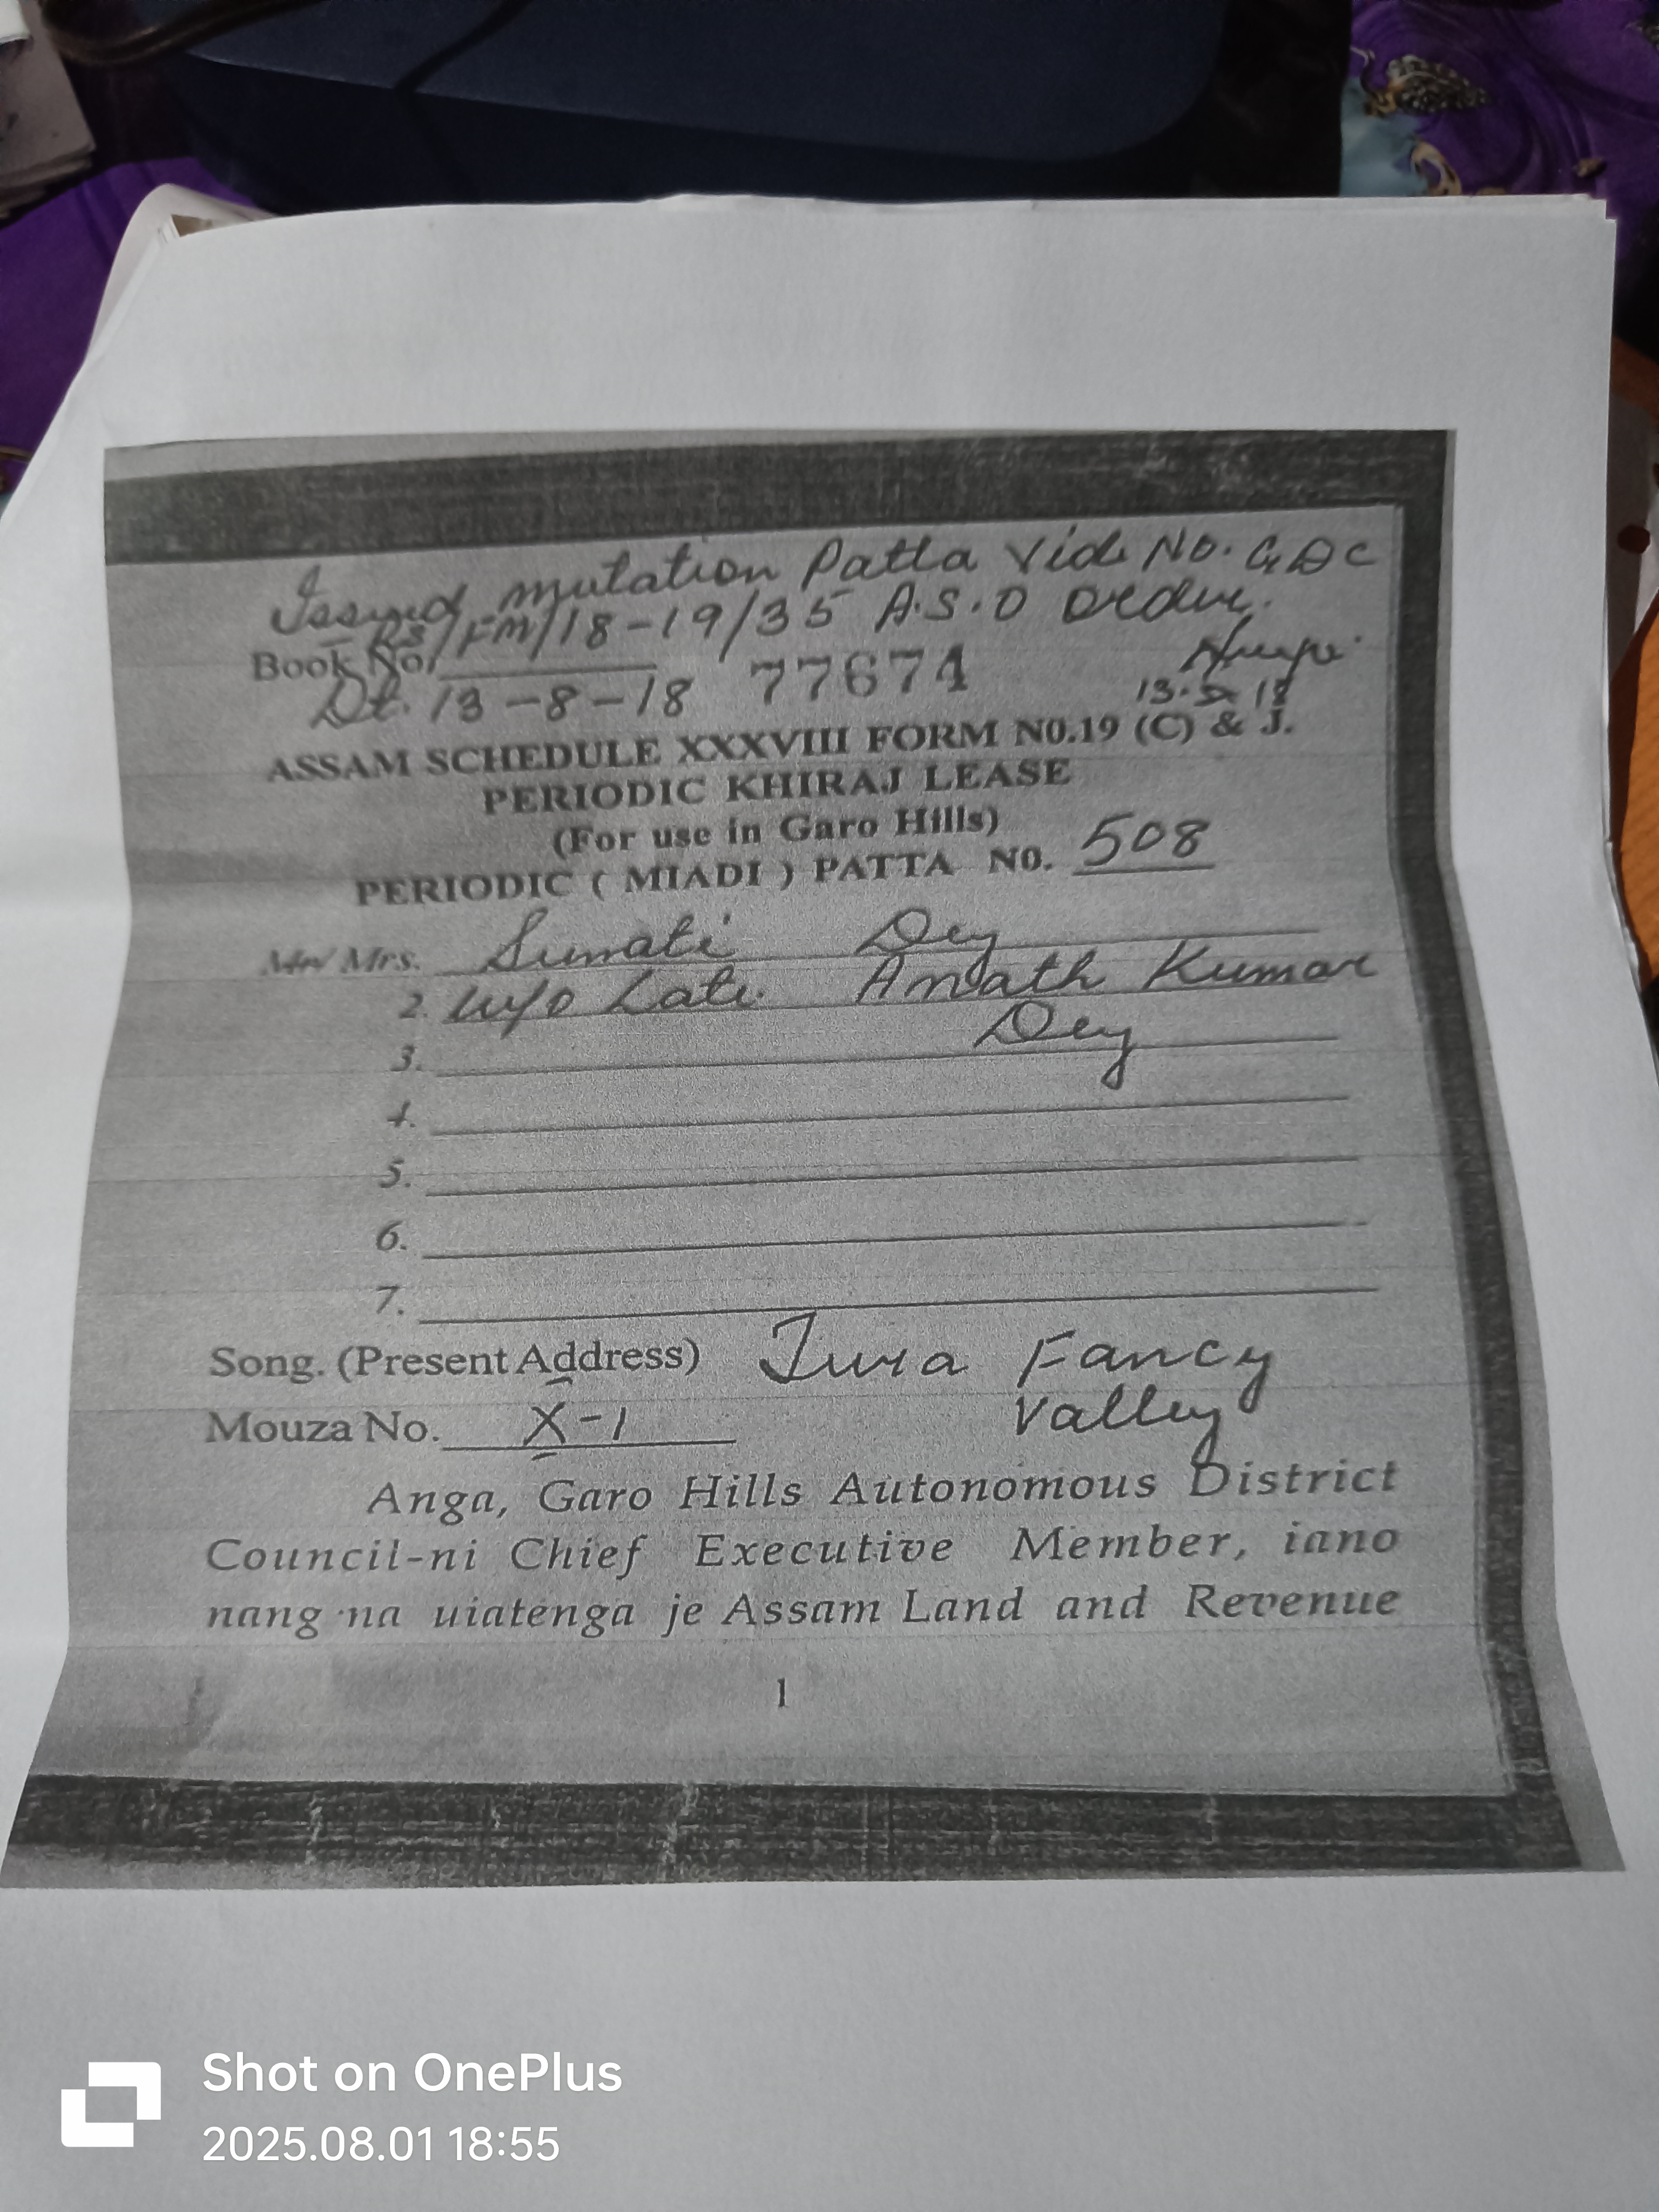 Issued mutation Patta Vide No. GDC
RS/FM/18-19/35 A.S.O Order.
Book No.
Dt. 13-8-18 77674
13-8-18
ASSAM SCHEDULE XXXVIII FORM N0.19 (C) & J.
PERIODIC KHIRAJ LEASE
(For use in Garo Hills)
PERIODIC ( MIADI ) PATTA N0. 508
Mr/ Mrs. Sumati Dey
2. W/o Late. Anath Kumar
Dey
3.
4.
5.
6.
7.
Song. (Present Address) Tura Fancy
Valley
Mouza No. X-1
Anga, Garo Hills Autonomous District
Council-ni Chief Executive Member, iano
nang·na uiatenga je Assam Land and Revenue
1
Shot on OnePlus
2025.08.01 18:55